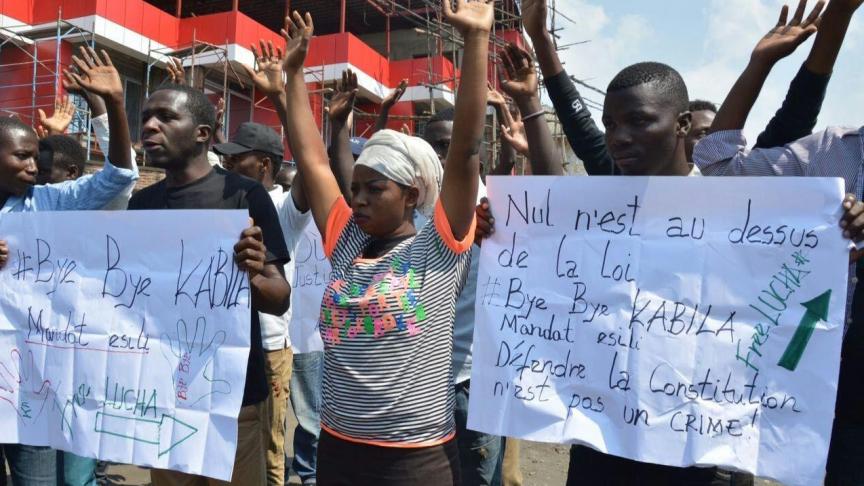 #Bye Bye KABILA
Mandat esili
Bye
Bye
LUCHA
Justice
Nul n'est au dessus
de la loi
#Bye Bye KABILA
Mandat esili
Défendre la Constitution
n'est pas un CRIME!
Free LUCHA#